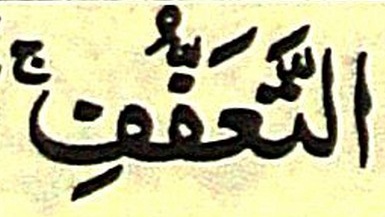 التَّعَفُّفِۚ